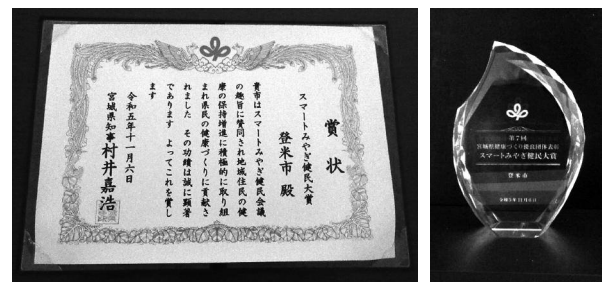 賞状
スマートみやぎ健民大賞
登米市 殿
貴市はスマートみやぎ健民会議
の趣旨に賛同され地域住民の健
康の保持増進に積極的に取り組
まれ県民の健康づくりに貢献さ
れました その功績は誠に顕著
であります よってこれを賞し
ます
令和五年十一月六日
宮城県知事 村井嘉浩
第7回
宮城県健康づくり優良団体表彰
スマートみやぎ健民大賞
登米市
令和5年11月6日